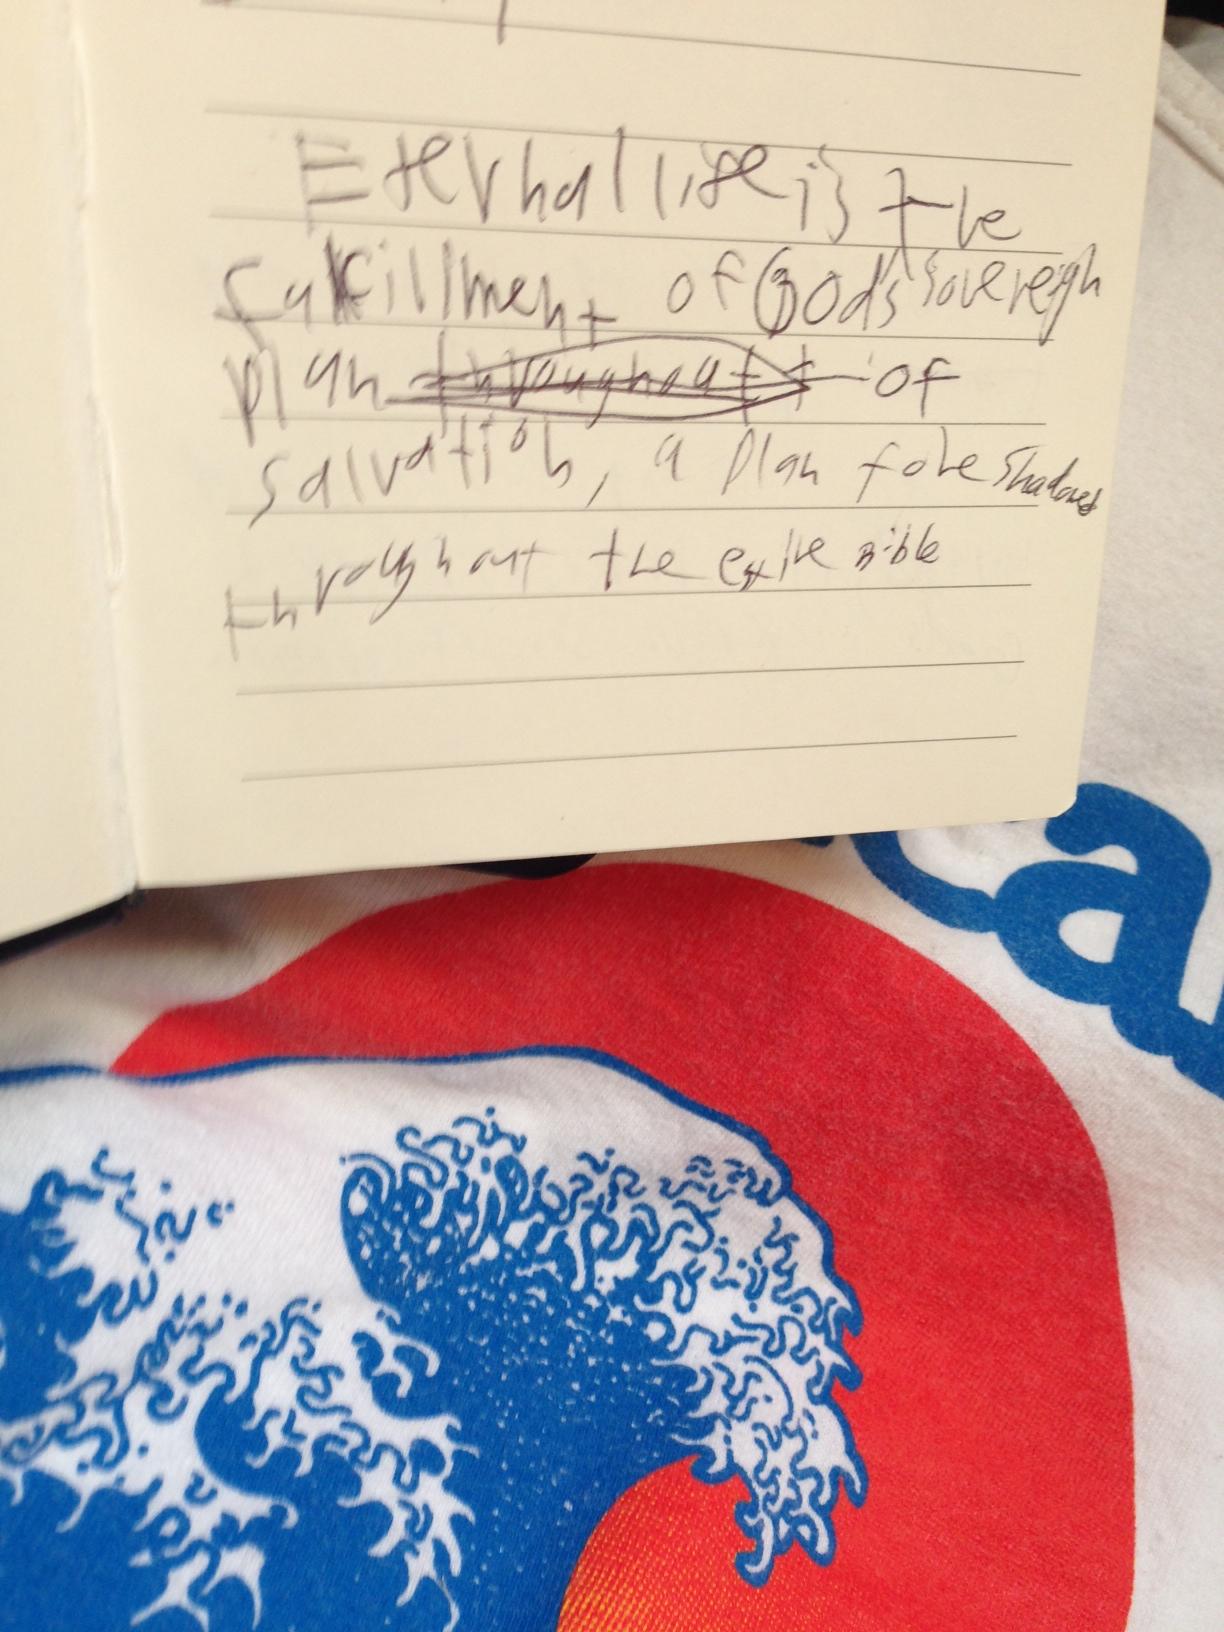 Eternal life is the
fulfillment of God's sovereign
plan throughout of
salvation, a plan foreshadowed
throughout the entire Bible
ca